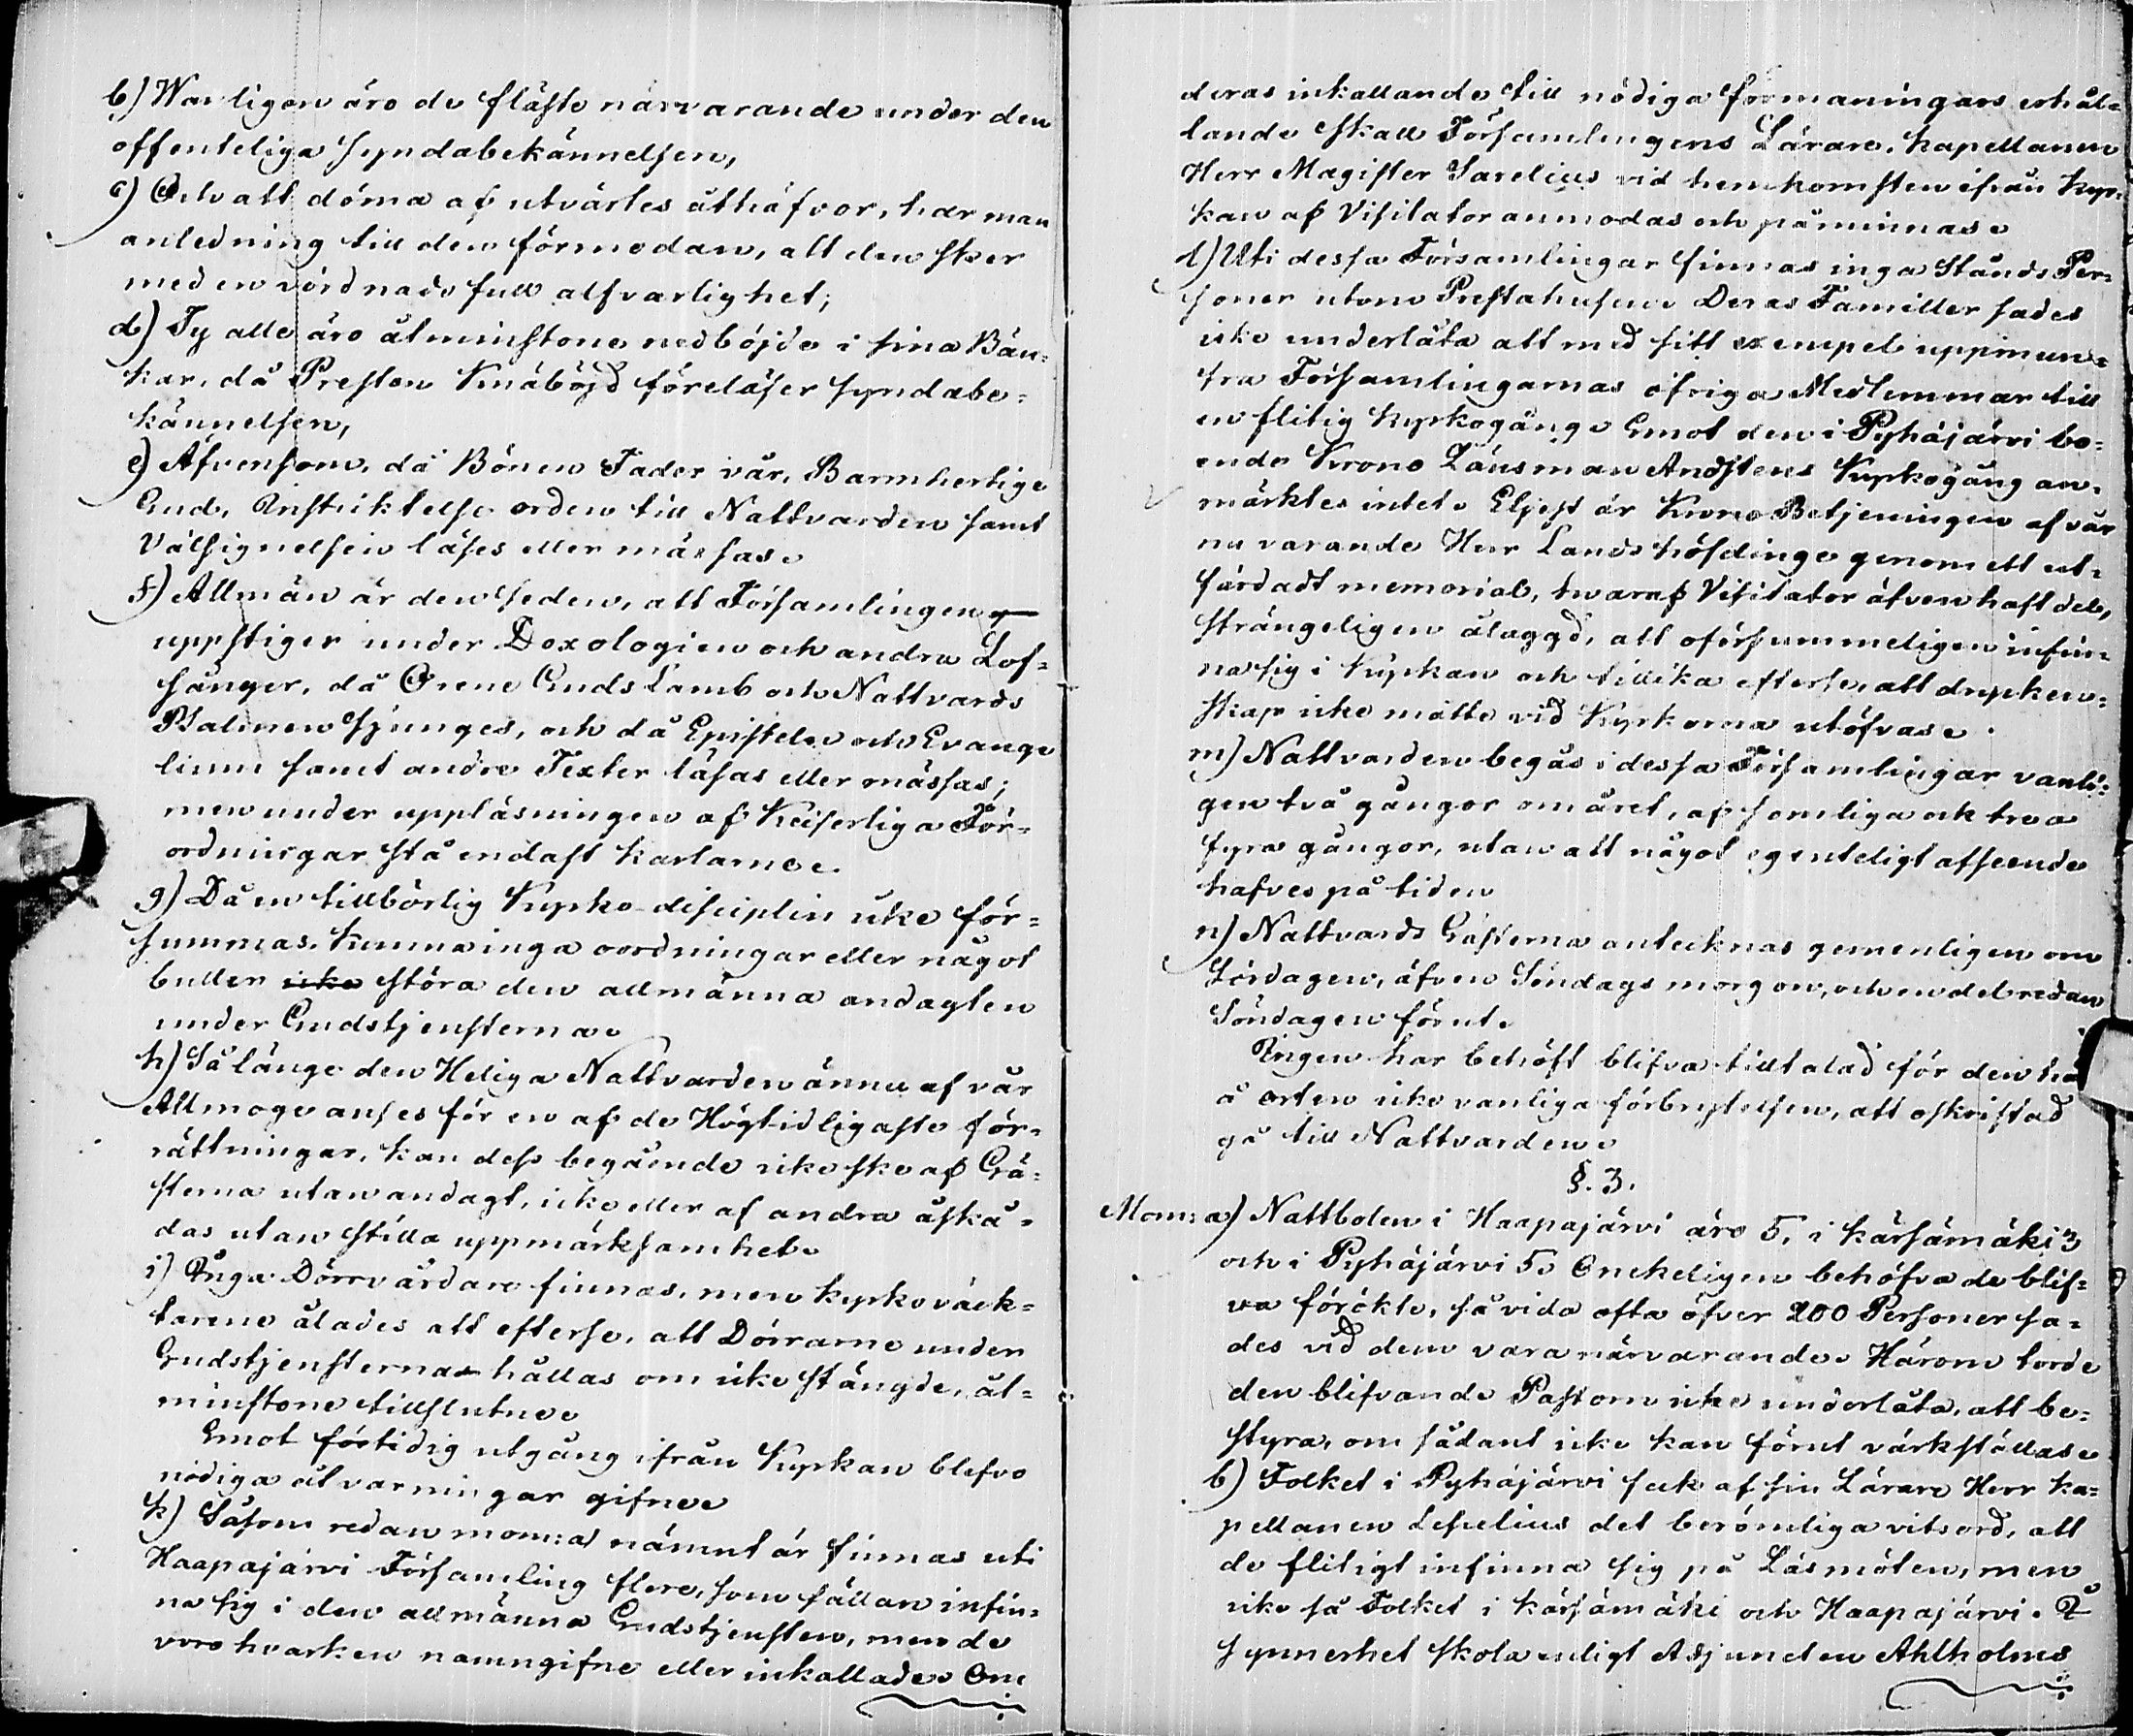 b) Wanligen äro de fläste närvarande under den
offenteliga syndabekännelsen,
c) Och att döma af utvärtes åthäfvor, har man
anledning till den förmodan, att den sker
med en vördnads full alfvarlighet;
d) Ty alle äro åtminstone nedböjde i sina Bän=
kar, då Presten Knäböjd föreläser syndabe=
kännelsen,
e) Äfvensom, då Bönen Fader vår, Barmhertige
Gud, Instiktelse orden till Nattvarden samt
Välsignelsen läses eller mässas.
f) Allmän är den seden, att Församlingen
uppstiger under Doxologien och andra Lof=
sånger, då O rene Guds Lamb och Nattvards
Psalmen sjunges, och då Epistelen och Evange
lium samt andre Texter läsas eller mässas;
men under uppläsningen af Keiserliga För=
ordningar stå endast karlarne.
g) Då en tillbörlig Kyrko-disciplin icke för=
summas, kunna inga oordningar eller något
buller icke störa den allmänna andagten
under Gudstjensterna.
h) Så länge den Heliga Nattvarden ännu af vår
Allmoge anses för en af de Högtidligaste för=
rättningar, kan dess begående icke ske af Gä=
sterna utan andagt, icke eller af andra åskå=
das utan stilla uppmärksamhet.
i) Inga Dörrvärdare finnas, men kyrkoväck=
tarene ålades att efterse, att Dörrarne under
Gudstjensternas hållas om icke stängde, åt=
minstone tillslutne.
Emot förtidig utgång ifrån Kyrkan blefvo
nödiga åtvarningar gifne.
k) Såsom redan mom: a) nämnt är finnas uti
Haapajärvi Församling flere, som sällan infin=
na sig i den allmänna Gudstjensten, men de
voro hvarken namngifne eller inkallade. Om
deras inkallande till nödiga förmaningars erhål=
lande skall Församlingens Lärare, Kapellanen
Herr Magister Sarelius vid hemkomsten ifrån Kyr=
kan af Visitator anmodas och påminnas.
l) Uti dessa Församlingar finnas inga Stånds Per=
soner utom Prestahusen. Deras Familler sades
icke underlåta att med sitt exempel uppmun=
tra Församlingarnas öfriga Medlemmar till
en flitig kyrkogång. Emot den i Pyhäjärvi bo=
ende Krono Länsman Andstens Kyrkogång an=
märktes intet. Eljest är Krono Betjeningen af vår
nu varande Herr Landshöfdinge genom ett ut=
färdadt memorial, hwaraf Visitator äfven haft del,
strängeligen ålaggd, att oförsummeligen infin=
na sig i Kyrkan och tillika efterse, att drycken=
skap icke måtte vid Kyrkorna utöfvas.
m) Nattvarden begås i dessa Församlingar vanli=
gen två gångor om året, af somliga ock tre a
fyra gångor, utan att något egenteligt afseende
hafves på tiden
n) Nattvards Gästerna antecknas gemenligen om
Lördagen, äfven Söndags morgon, och en del redan
Söndagen förut.
Ingen har behöft blifva tilltalad för den här
å orten icke vanliga förbrytelsen, att oskriftad
gå till Nattvarden.
§. 3.
Mom: a) Nattbolen i Haapajärvi äro 5, i Kärsämäki 3
och i Pyhäjärvi 5. Oneckeligen behöfva de blif=
va förökte, så vida ofta öfver 200 Personer sa=
des vid dem vara närvarande. Härom torde
den blifvande Pastorn icke underlåta, att be=
styra, om sådant icke kan förut värkställas.
b) Folket i Pyhäjärvi feck af sin Lärare Herr Ka=
pellanen Lefrelius det berömliga vitsord, att
de flitigt infinna sig på Läsmöten, men
icke så Folket i Kärsämäki och Haapajärvi. I
synnerhet skola enligt Adjuncten Ahlholms